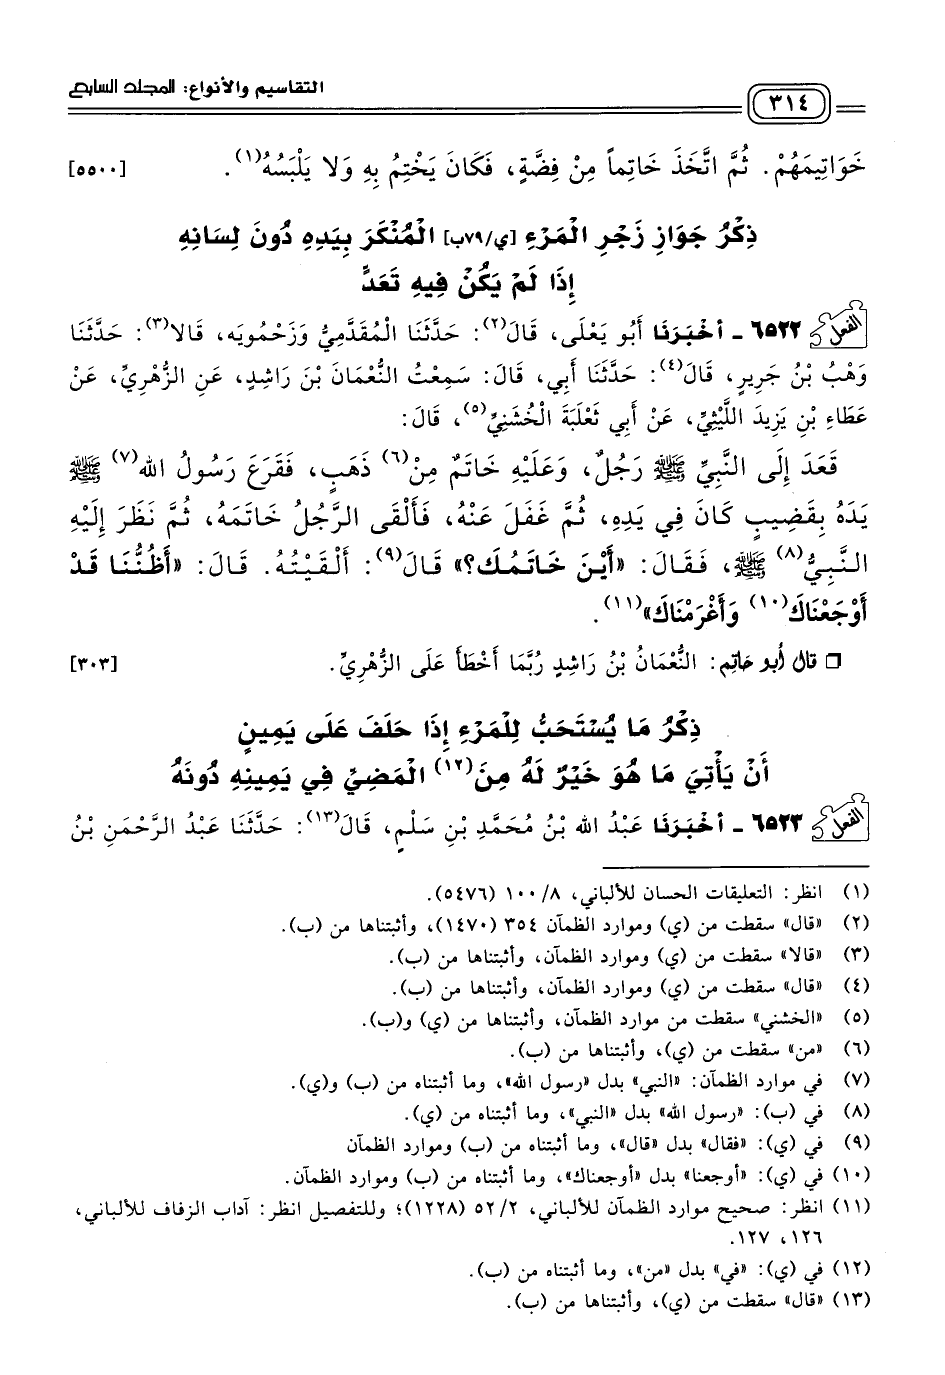 التقاسيم والأنواع: المجلد السابع
٣١٤
خَوَاتِيمَهُمْ. ثُمَّ اتَّخَذَ خَاتِماً مِنْ فِضَّةٍ، فَكَانَ يَخْتِمُ بِهِ وَلا يَلْبَسُهُ(١). [٥٥٠٠]
ذِكْرُ جَوَازِ زَجْرِ الْمَرْءِ [ي/٧٩ب] الْمُنْكَرَ بِيَدِهِ دُونَ لِسَانِهِ
إِذَا لَمْ يَكُنْ فِيهِ تَعَدٍّ
الفعل ٦٥٢٢ ـ أخْبَرَنَا أَبُو يَعْلَى، قَالَ(٢): حَدَّثَنَا الْمُقَدَّمِيُّ وَزَحْمُويَه، قَالا(٣): حَدَّثَنَا
وَهْبُ بْنُ جَرِيرٍ، قَالَ(٤): حَدَّثَنَا أَبِي، قَالَ: سَمِعْتُ النُّعْمَانَ بْنَ رَاشِدٍ، عَنِ الزُّهْرِيِّ، عَنْ
عَطَاءِ بْنِ يَزِيدَ اللَّيْثِيِّ، عَنْ أَبِي ثَعْلَبَةَ الْخُشَنِيِّ(٥)، قَالَ:
قَعَدَ إِلَى النَّبِيِّ ﷺ رَجُلٌ، وَعَلَيْهِ خَاتَمٌ مِنْ(٦) ذَهَبٍ، فَقَرَعَ رَسُولُ الله(٧) ﷺ
يَدَهُ بِقَضِيبٍ كَانَ فِي يَدِهِ، ثُمَّ غَفَلَ عَنْهُ، فَأَلْقَى الرَّجُلُ خَاتَمَهُ، ثُمَّ نَظَرَ إِلَيْهِ
النَّبِيُّ(٨) ﷺ، فَقَالَ: «أَيْنَ خَاتَمُكَ؟» قَالَ(٩): أَلْقَيْتُهُ. قَالَ: «أَظُنُّنَا قَدْ
أَوْجَعْنَاكَ(١٠) وَأَغْرَمْنَاكَ»(١١).
❒ قال أبو حاتِم: النُّعْمَانُ بْنُ رَاشِدٍ رُبَّمَا أَخْطَأَ عَلَى الزُّهْرِيِّ. [٣٠٣]
ذِكْرُ مَا يُسْتَحَبُّ لِلْمَرْءِ إِذَا حَلَفَ عَلَى يَمِينٍ
أَنْ يَأْتِيَ مَا هُوَ خَيْرٌ لَهُ مِنَ(١٢) الْمَضِيِّ فِي يَمِينِهِ دُونَهُ
الفعل ٦٥٢٣ ـ أخْبَرَنَا عَبْدُ الله بْنُ مُحَمَّدِ بْنِ سَلْمٍ، قَالَ(١٣): حَدَّثَنَا عَبْدُ الرَّحْمَنِ بْنُ
(١) انظر: التعليقات الحسان للألباني، ٨/ ١٠٠ (٥٤٧٦).
(٢) «قال» سقطت من (ي) وموارد الظمآن ٣٥٤ (١٤٧٠)، وأثبتناها من (ب).
(٣) «قالا» سقطت من (ي) وموارد الظمآن، وأثبتناها من (ب).
(٤) «قال» سقطت من (ي) وموارد الظمآن، وأثبتناها من (ب).
(٥) «الخشني» سقطت من موارد الظمآن، وأثبتناها من (ي) و(ب).
(٦) «من» سقطت من (ي)، وأثبتناها من (ب).
(٧) في موارد الظمآن: «النبي» بدل «رسول الله»، وما أثبتناه من (ب) و(ي).
(٨) في (ب): «رسول الله» بدل «النبي»، وما أثبتناه من (ي).
(٩) في (ي): «فقال» بدل «قال»، وما أثبتناه من (ب) وموارد الظمآن
(١٠) في (ي): «أوجعنا» بدل «أوجعناك»، وما أثبتناه من (ب) وموارد الظمآن.
(١١) انظر: صحيح موارد الظمآن للألباني، ٥٢/٢ (١٢٢٨)؛ وللتفصيل انظر: آداب الزفاف للألباني،
١٢٦، ١٢٧.
(١٢) في (ي): «في» بدل «من»، وما أثبتناه من (ب).
(١٣) «قال» سقطت من (ي)، وأثبتناها من (ب).